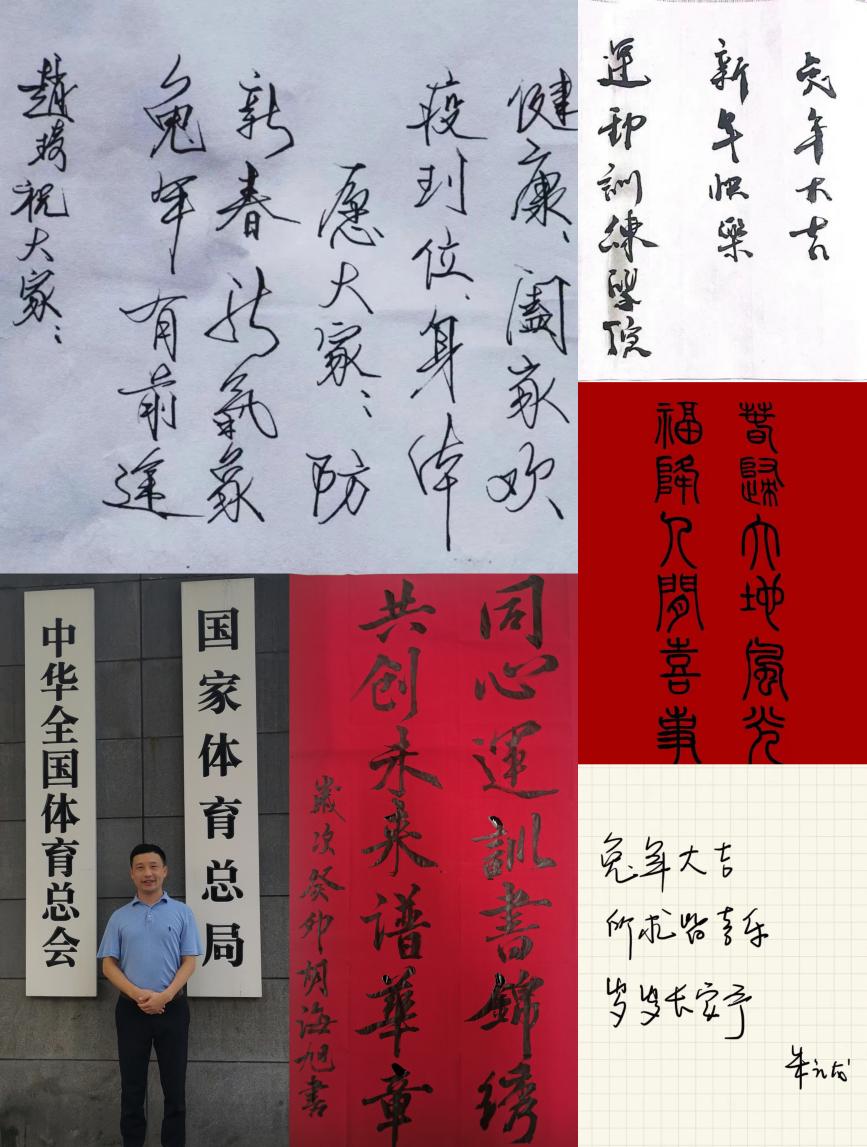 趙琦祝大家：
兔年有前途
新春新氣象
愿大家：防
疫到位、身体
健康、阖家欢
兔年大吉
新年快樂
運動訓練學院
春歸大地風光
福降人間喜事
中华全国体育总会
国家体育总局
同心運訓書錦绣
共创未来谱華章
歲次癸卯胡海旭書
兔年大吉
所求皆喜乐
岁岁长安宁